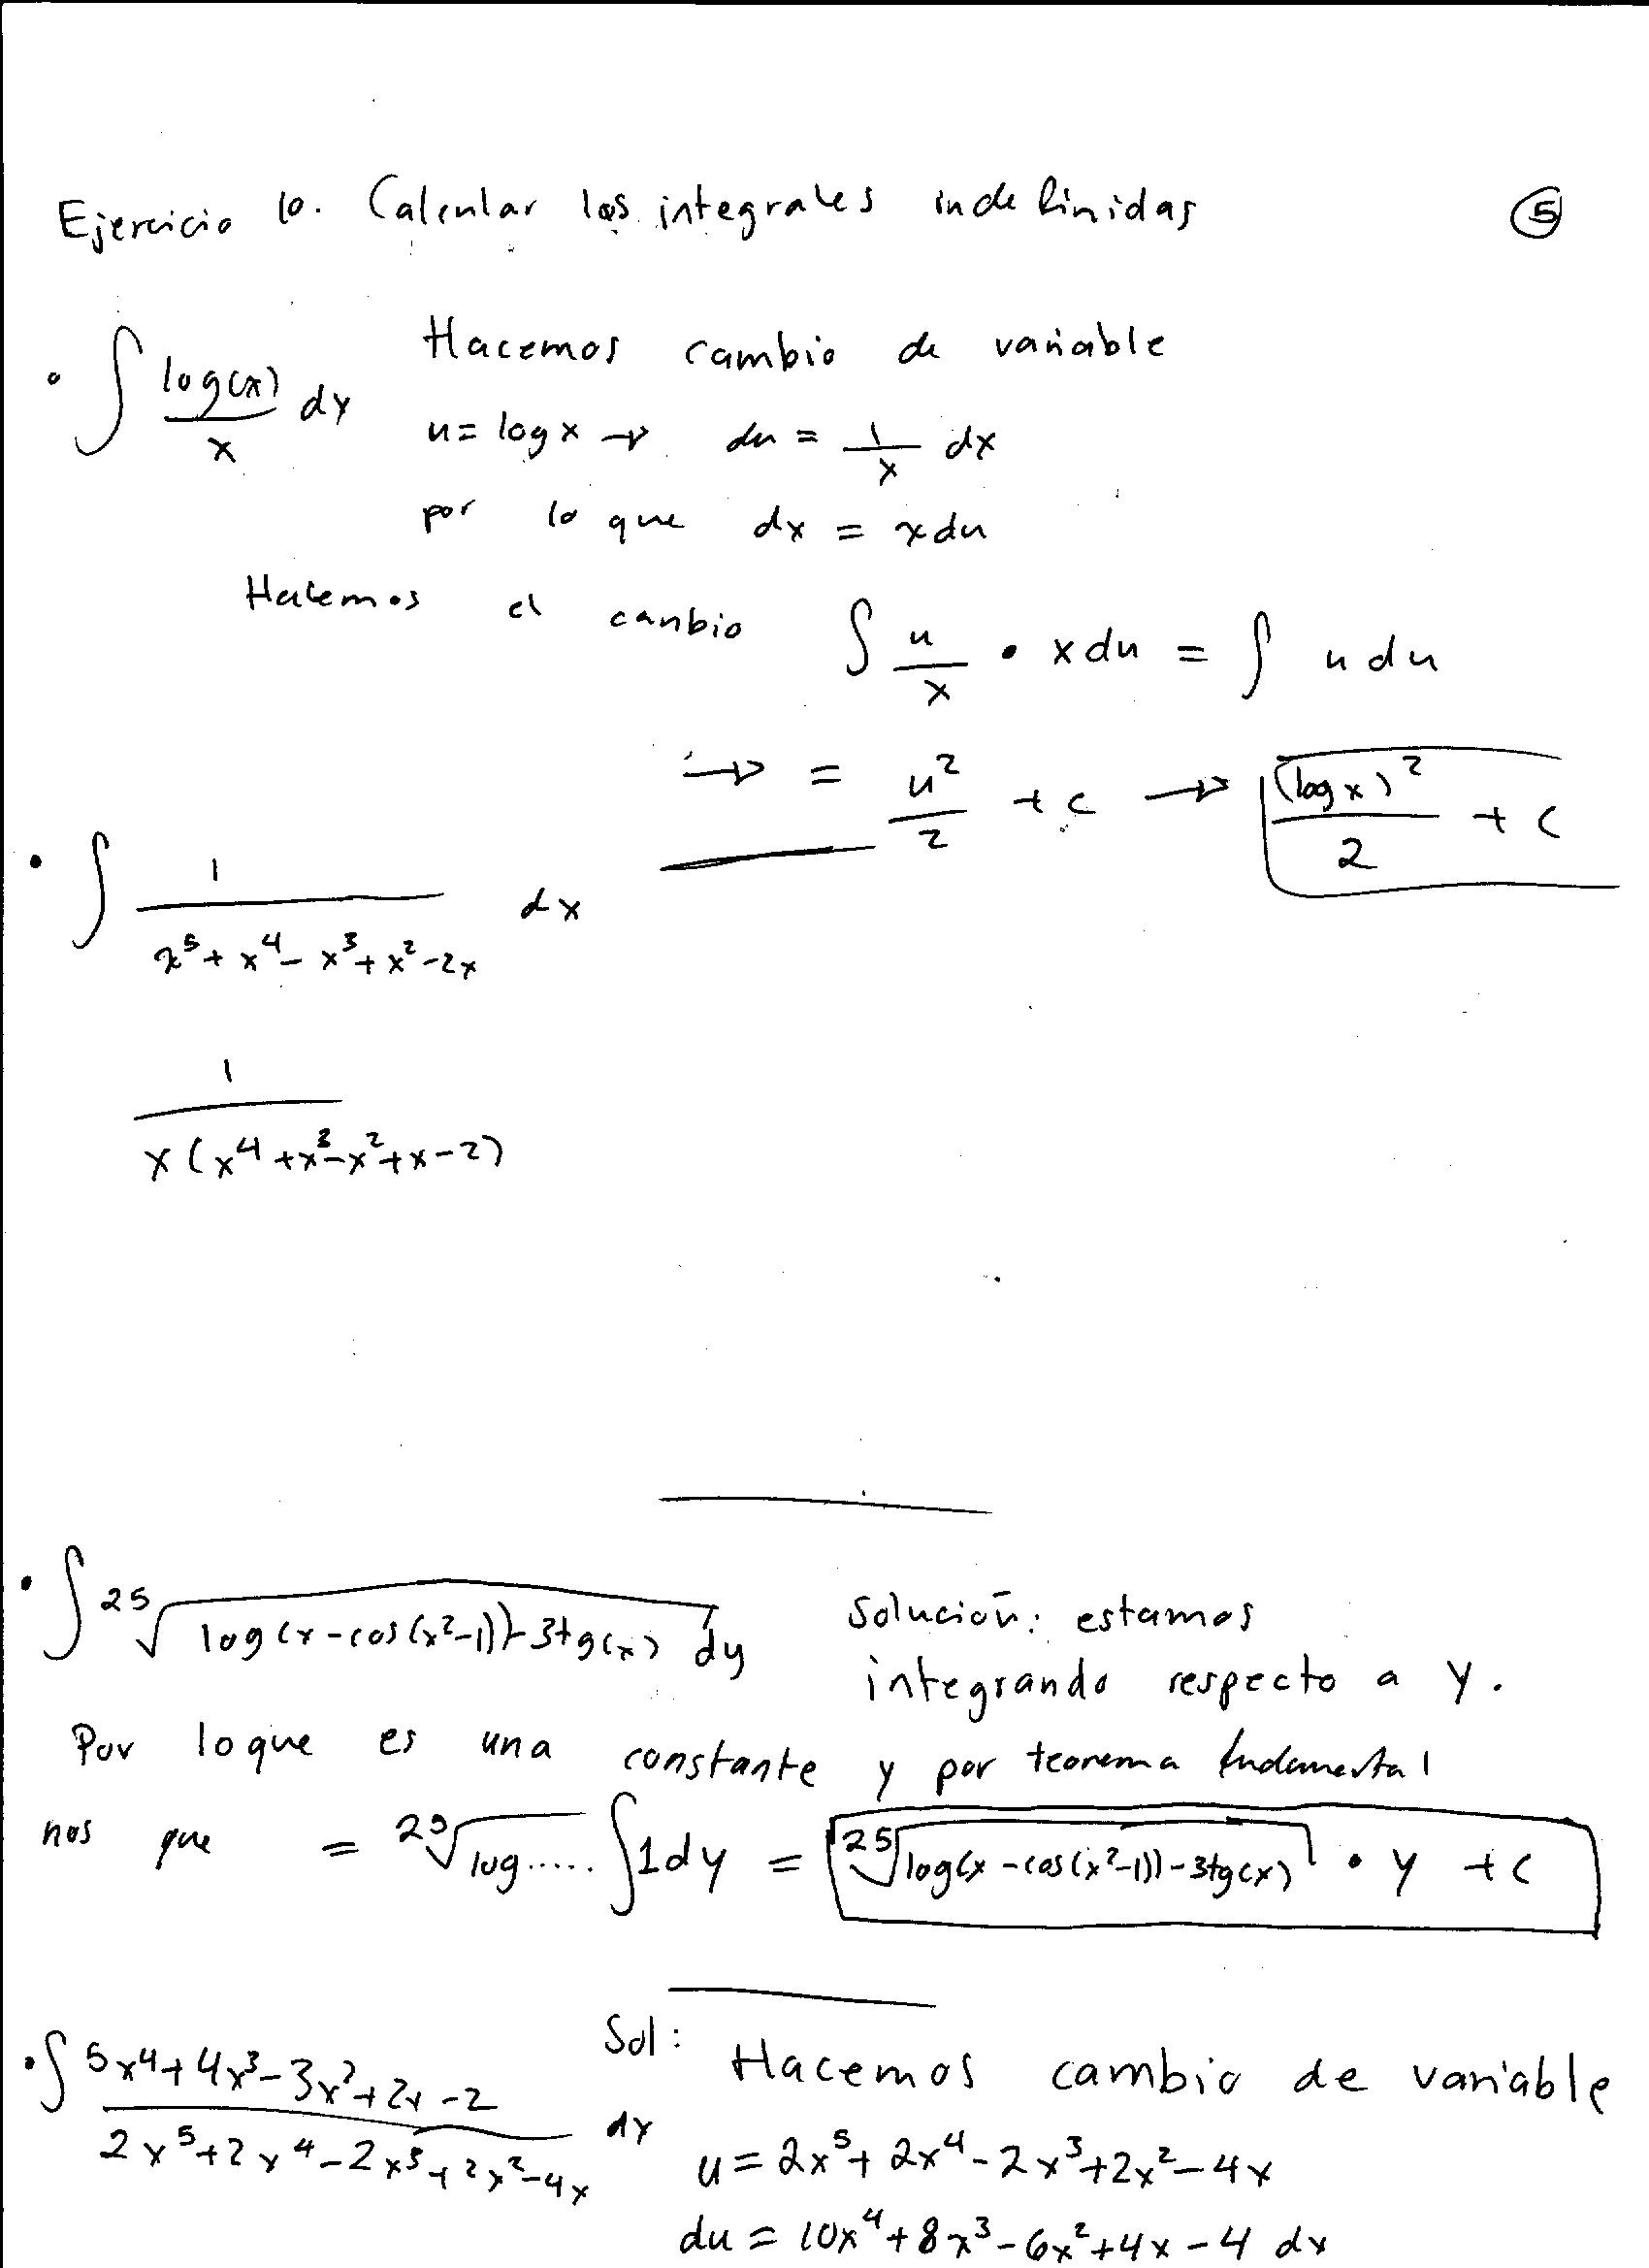 Ejercicio 10. Calcular las integrales indefinidas ⑤
• ∫ log(x)/x dx Hacemos cambio de variable
u = log x → du = 1/x dx
por lo que dx = x du
Hacemos el canbio ∫ u/x • x du = ∫ u du
→ = u²/2 + c → (log x)²/2 + c
• ∫ 1/(x⁵ + x⁴ - x³ + x² - 2x) dx
1/(x(x⁴ + x³ - x² + x - 2))
• ∫ ²⁵√(log(x - cos(x²-1)) - 3tg(x)) dy Solución: estamos
integrando respecto a y.
Por lo que es una constante y por teorema fundamental
nos que = ²⁵√(log.....) ∫ 1 dy = ²⁵√(log(x - cos(x²-1)) - 3tg(x)) • y + c
• ∫ (5x⁴ + 4x³ - 3x² + 2x - 2)/(2x⁵ + 2x⁴ - 2x³ + 2x² - 4x) dx Sol: Hacemos cambio de variable
u = 2x⁵ + 2x⁴ - 2x³ + 2x² - 4x
du = 10x⁴ + 8x³ - 6x² + 4x - 4 dx